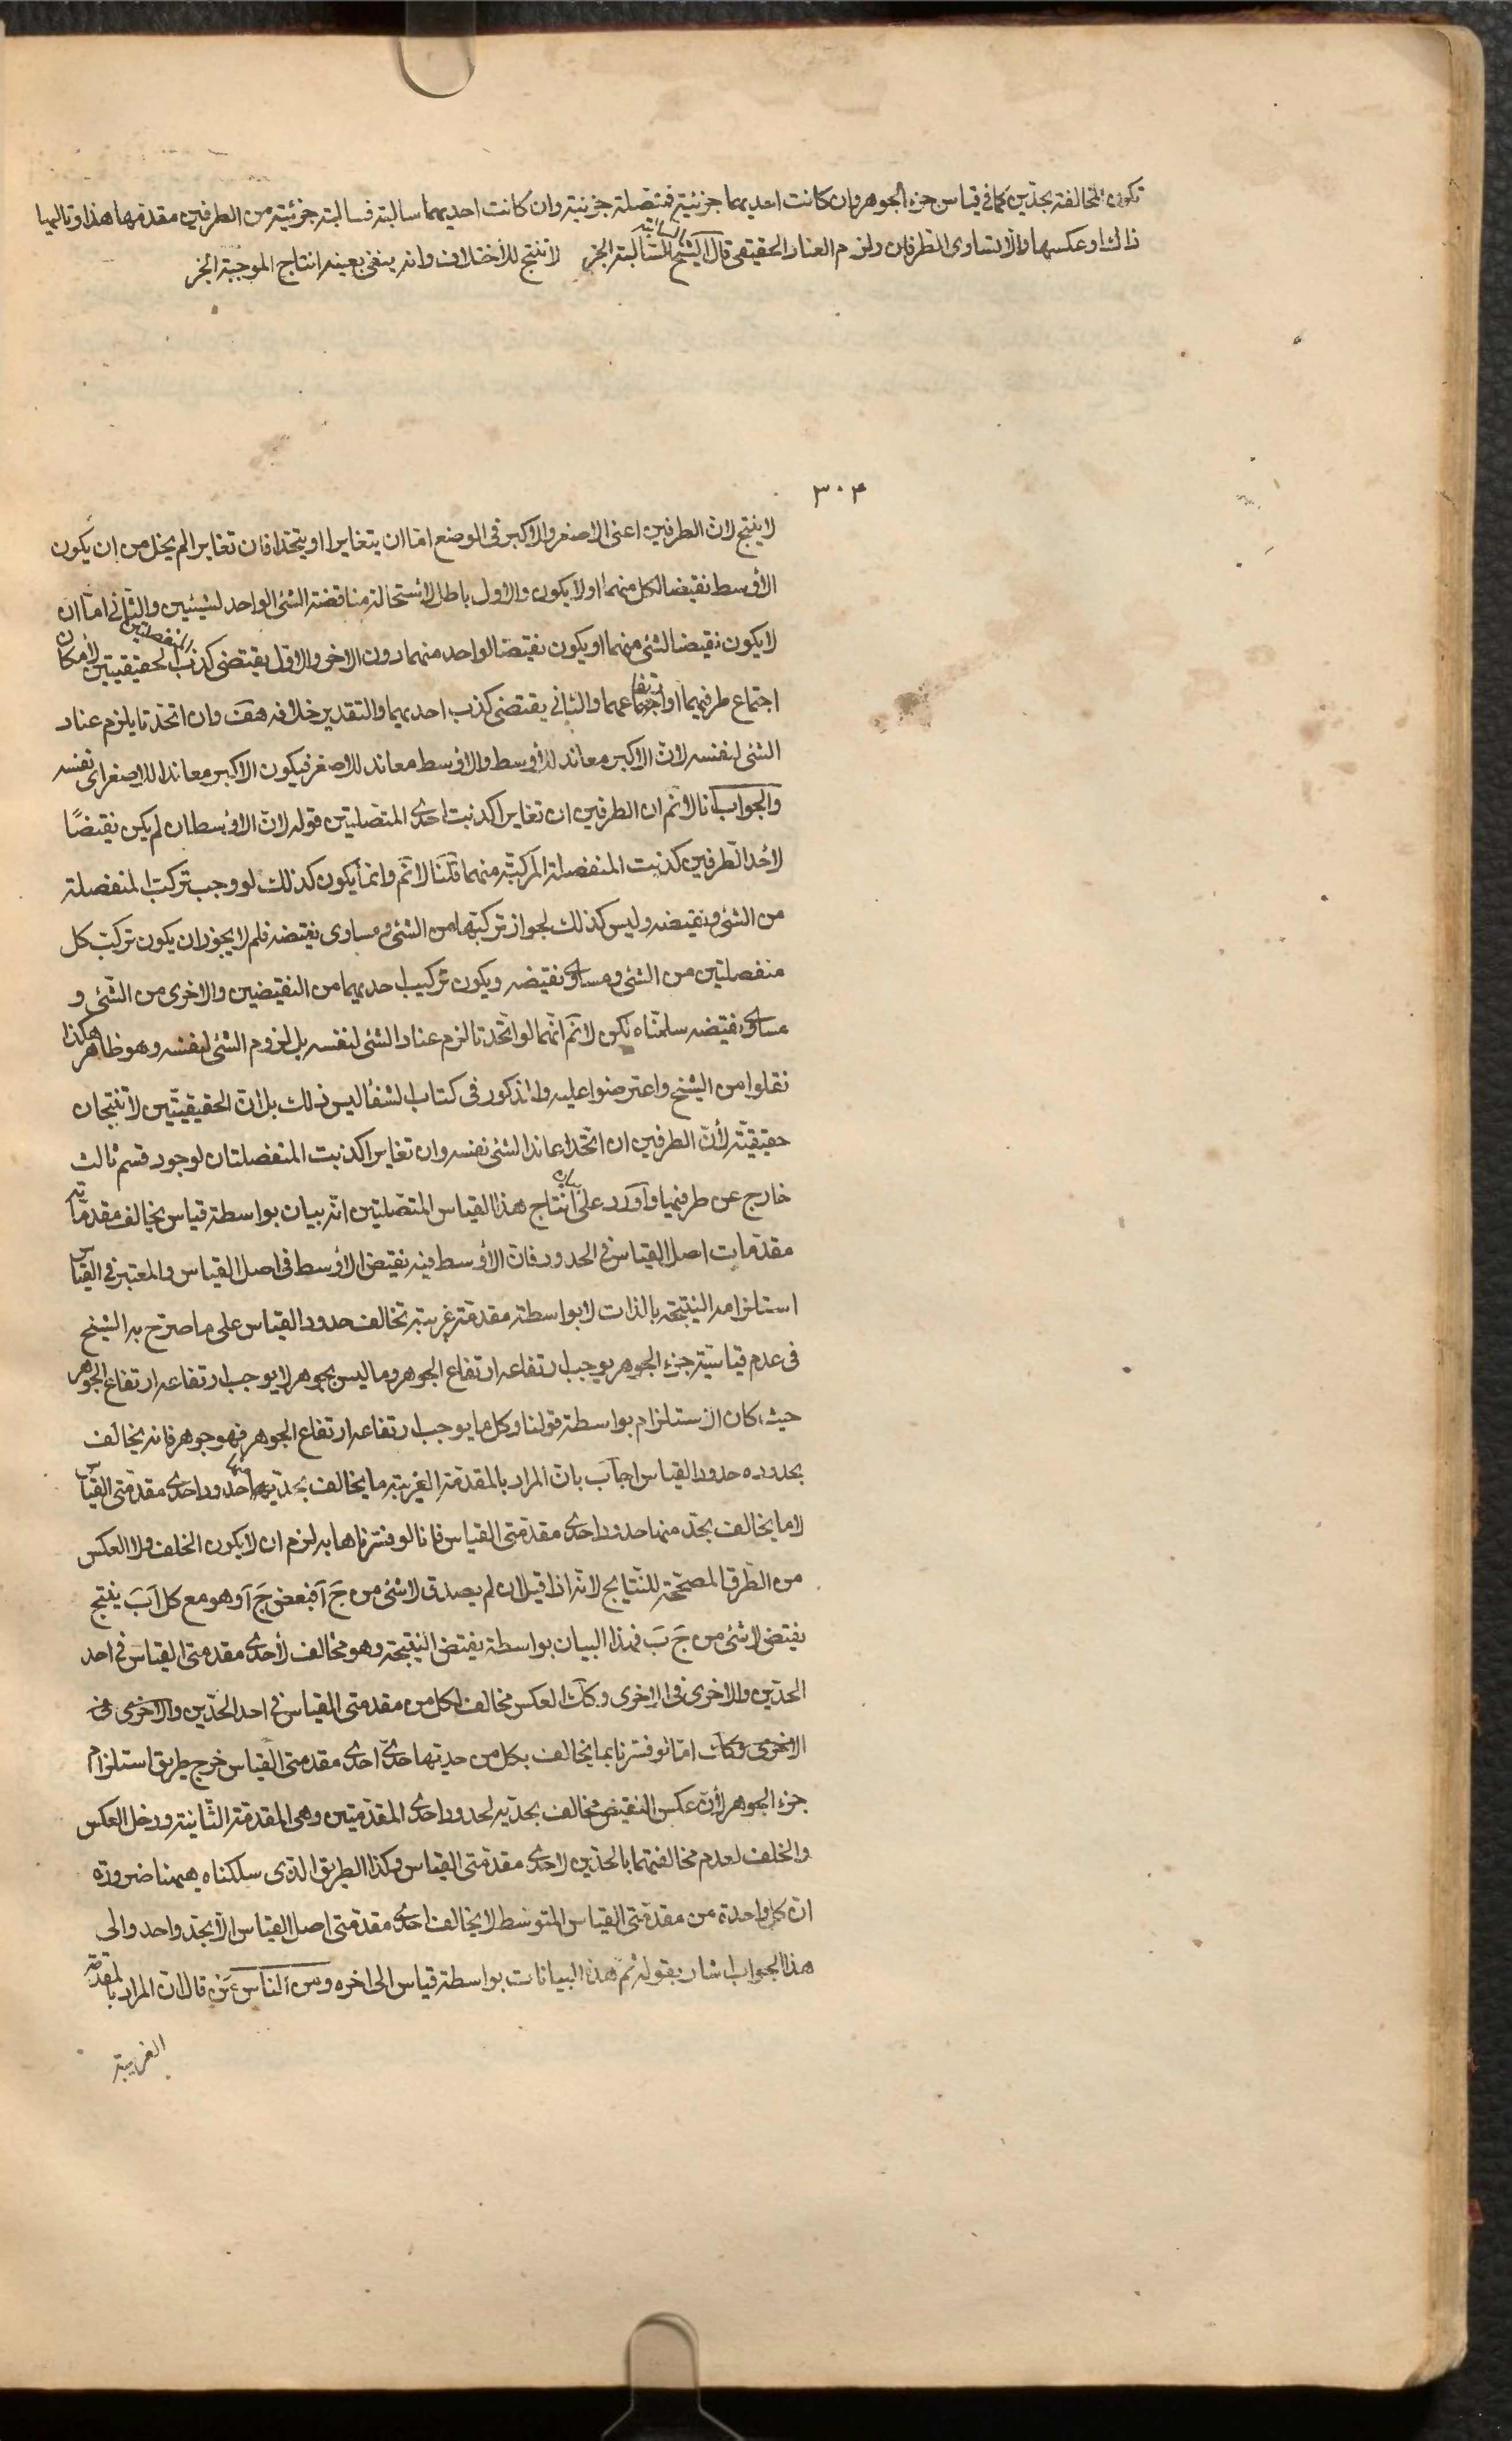 تكون المخالفة بحدين كما فى قياس جزء الجوهر وان كانت احديهما جزئية فمتصلة جزئية وان كانت احديهما سالبة فسالبة جزئية من الطرفين مقدمها هذا وتاليها
ذاك او عكسها والا لتساوى الطرفان ولزم العناد الحقيقى قال الشيخ السالبة الجز لا تنتج للاختلاف وانه ينفى بعينه انتاج الموجبة الجز
٣٠٤
لا ينتج لان الطرفين اعنى الاصغر والاكبر فى الوضع اما ان يتغايرا او يتحدا فان تغايرا لم يخل من ان يكون
الأوسط نقيضا لكل منهما اولا يكون والاول باطل لاستحالة مناقضة الشئ الواحد لشيئين والثانى اما ان
لا يكون نقيضا لشئ منهما او يكون نقيضا لواحد منهما دون الاخر والاول يقتضى كذب المنفصلتين الحقيقيتين لامكان
اجتماع طرفيهما او ارتفاعهما والثانى يقتضى كذب احديهما والتقدير خلافه هف وان اتحدتا يلزم عناد
الشئ لنفسه لان الاكبر معاند للأوسط والاوسط معاند للاصغر فيكون الاكبر معاندا للاصغر اى نفسه
والجواب انا لانم ان الطرفين ان تغايرا كذبت احدى المتصلتين قوله لان الاوسط ان لم يكن نقيضًا
لأحد الطرفين كذبت المنفصلة المركبة منهما قلنا لانم وانما يكون كذلك لو وجب تركب المنفصلة
من الشئ ونقيضه وليس كذلك لجواز تركبها من الشئ ومساوى نقيضه فلم لا يجوز ان يكون تركب كل
منفصلتين من الشئ ومساوى نقيضه ويكون تركيب احديهما من النقيضين والاخرى من الشئ و
مساوى نقيضه سلمناه لكن لانم انهما لو اتحدتا لزم عناد الشئ لنفسه بل لزوم الشئ لنفسه وهو ظاهر هكذا
نقلوا من الشيخ واعترضوا عليه والمذكور فى كتاب الشفا ليس ذلك بل ان الحقيقيتين لا تنتجان
حقيقيّة لأن الطرفين ان اتحدا عاند الشئ نفسه وان تغايرا كذبت المنفصلتان لوجود قسم ثالث
خارج عن طرفيهما واورد على بيان انتاج هذا القياس المتصلتين انه بيان بواسطة قياس يخالف مقدماته
مقدمات اصل القياس فى الحدود فان الأوسط فيه نقيض الأوسط فى اصل القياس والمعتبر فى القياس
استلزامه النتيجة بالذات لا بواسطة مقدمة غريبة تخالف حدود القياس على ما صرح به الشيخ
فى عدم قياسية جزء الجوهر يوجب ارتفاعه ارتفاع الجوهر وما ليس بجوهر لا يوجب ارتفاعه ارتفاع الجوهر
حيث كان الاستلزام بواسطة قولنا وكل ما يوجب ارتفاعه ارتفاع الجوهر فهو جوهر فانه يخالف
بحدوده حدود القياس اجاب بان المراد بالمقدمة الغريبة ما يخالف بحديه حدود احدى مقدمتى القياس
لا ما يخالف بحد منها حدود احدى مقدمتى القياس فانا لو فسرناها به لزم ان لا يكون الخلف ولا العكس
من الطرق المصححة للنتايج لانه اذا قيل ان لم يصدق لا شئ من جَ آ فبعض جَ آ وهو مع كل آ بَ ينتج
نقيض لا شئ من جَ بَ فهذا البيان بواسطة نقيض النتيجة وهو مخالف لأحدى مقدمتى القياس فى احد
الحدّين والاخرى فى الاخرى وكك العكس مخالف لكل من مقدمتى القياس فى احد الحدّين والاخرى فى
الاخرى وكك اما لو فسرنا بما يخالف بكل من حديها حدى احدى مقدمتى القياس خرج طريق استلزام
جزء الجوهر لأن عكس النقيض مخالف بحديه لحدود احدى المقدمتين وهى المقدمة الثانية ودخل العكس
والخلف لعدم مخالفتهما بالحدين لاحدى مقدمتى القياس وكذا الطريق الذى سلكناه ههنا ضرورة
ان كل واحدة من مقدمتى القياس المتوسط لا يخالف احدى مقدمتى اصل القياس الا بحد واحد والى
هذا الجواب اشار بقوله ثم هذه البيانات بواسطة قياس الى اخره ومن الناس من قال ان المراد بالمقدمة
الغريبة